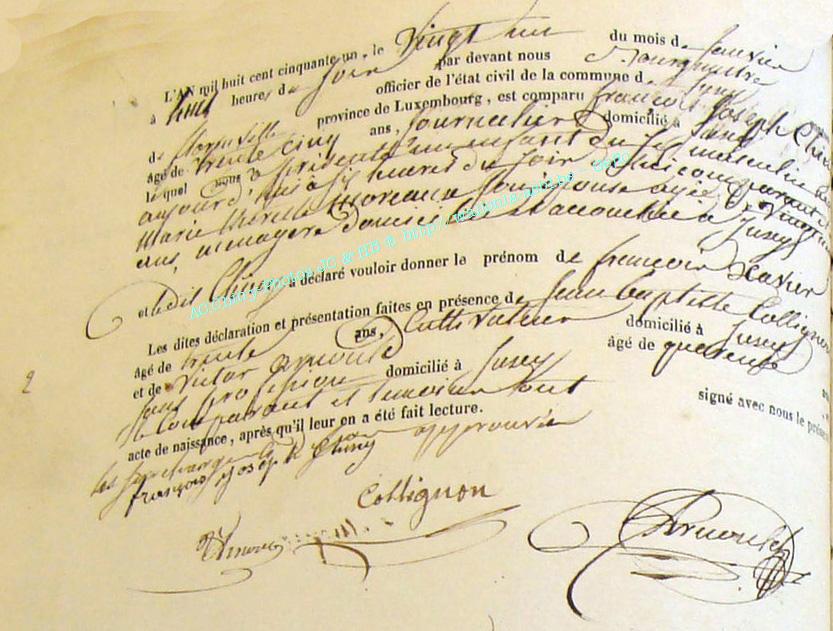 L'AN mil huit cent cinquante un, le Vingt un du mois de Janvier
à huit heures du Soir par devant nous Bourgmestre
officier de l'état civil de la commune de Jusey
province de Luxembourg, est comparu françois Joseph Chiny
de florenville
âgé de trente cinq ans, Journalier domicilié à Jusey
lequel nous a présenté un enfant du sexe masculin né
aujourd'hui à six heures du soir de lui comparant et de
Marie thérèse Moreaux son épouse agée de vingt
ans, menagere domiciliée et accouchée à Jusey
et ledit Chiny a déclaré vouloir donner le prénom de francois Xavier
Les dites déclaration et présentation faites en présence de Jean Baptiste Collignon
âgé de trente ans, Cultivateur domicilié à Jusey
et de Victor Arnould âgé de quarante
sans profession domicilié à Jusey
le Comparant et temoins ont signé avec nous le présent
acte de naissance, après qu'il leur en a été fait lecture.
approuvée
françois joseph Chiny
Collignon
VArnould
Arnould
2